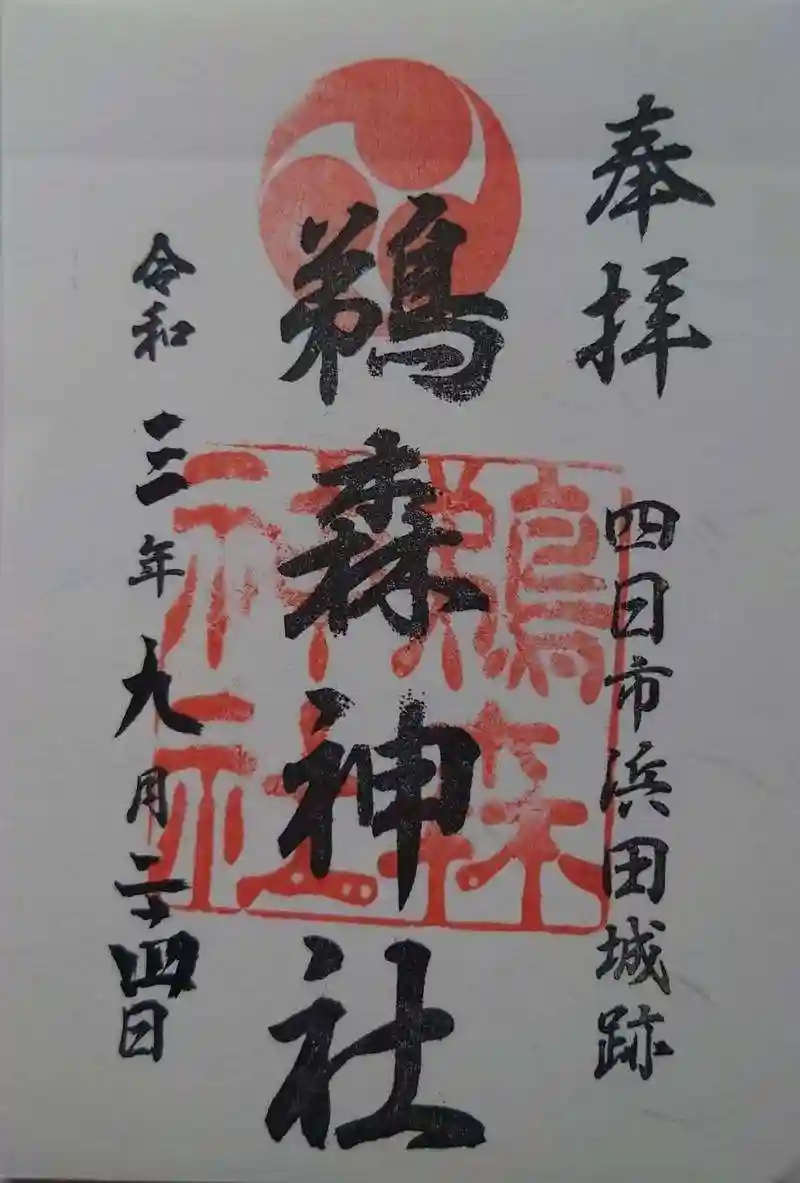 奉拝
四日市浜田城跡
鵜森神社
鵜森
神社
令和三年九月二十四日